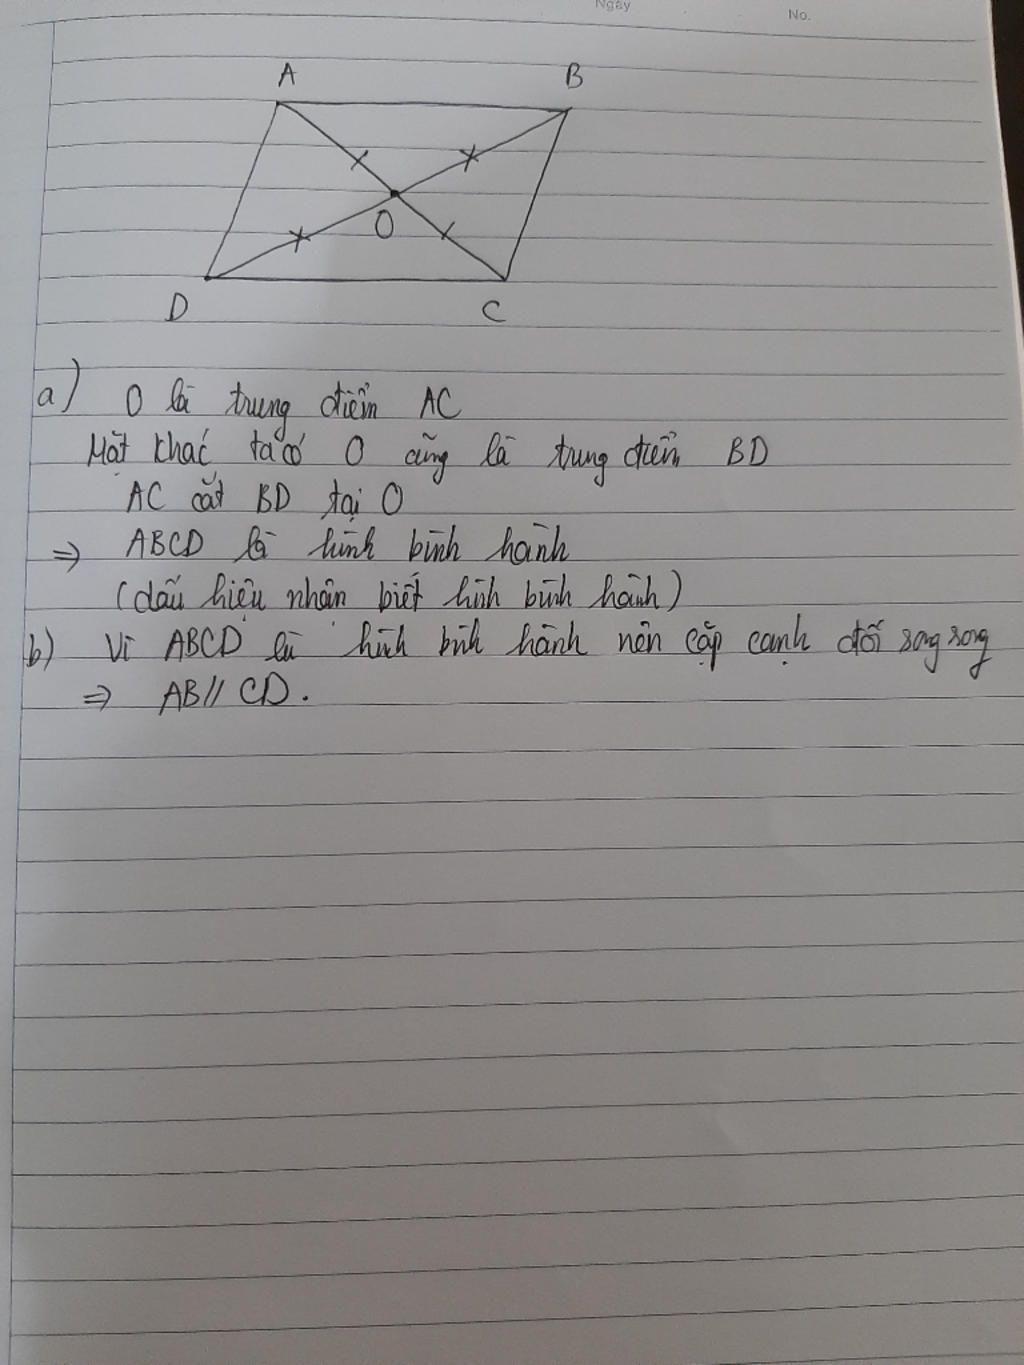 Ngày
No.
A
B
O
D
C
a) O là trung điểm AC
Mặt khác ta có O cũng là trung điểm BD
AC cắt BD tại O
⇒ ABCD là hình bình hành
(dấu hiệu nhận biết hình bình hành)
b) Vì ABCD là hình bình hành nên cặp cạnh đối song song
⇒ AB // CD.